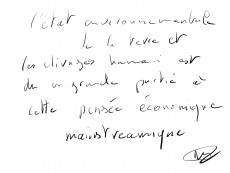 l'état environnementale
de la terre et
les clivages humains est
du en grande partie à
cette pensée économique
mainstreamique